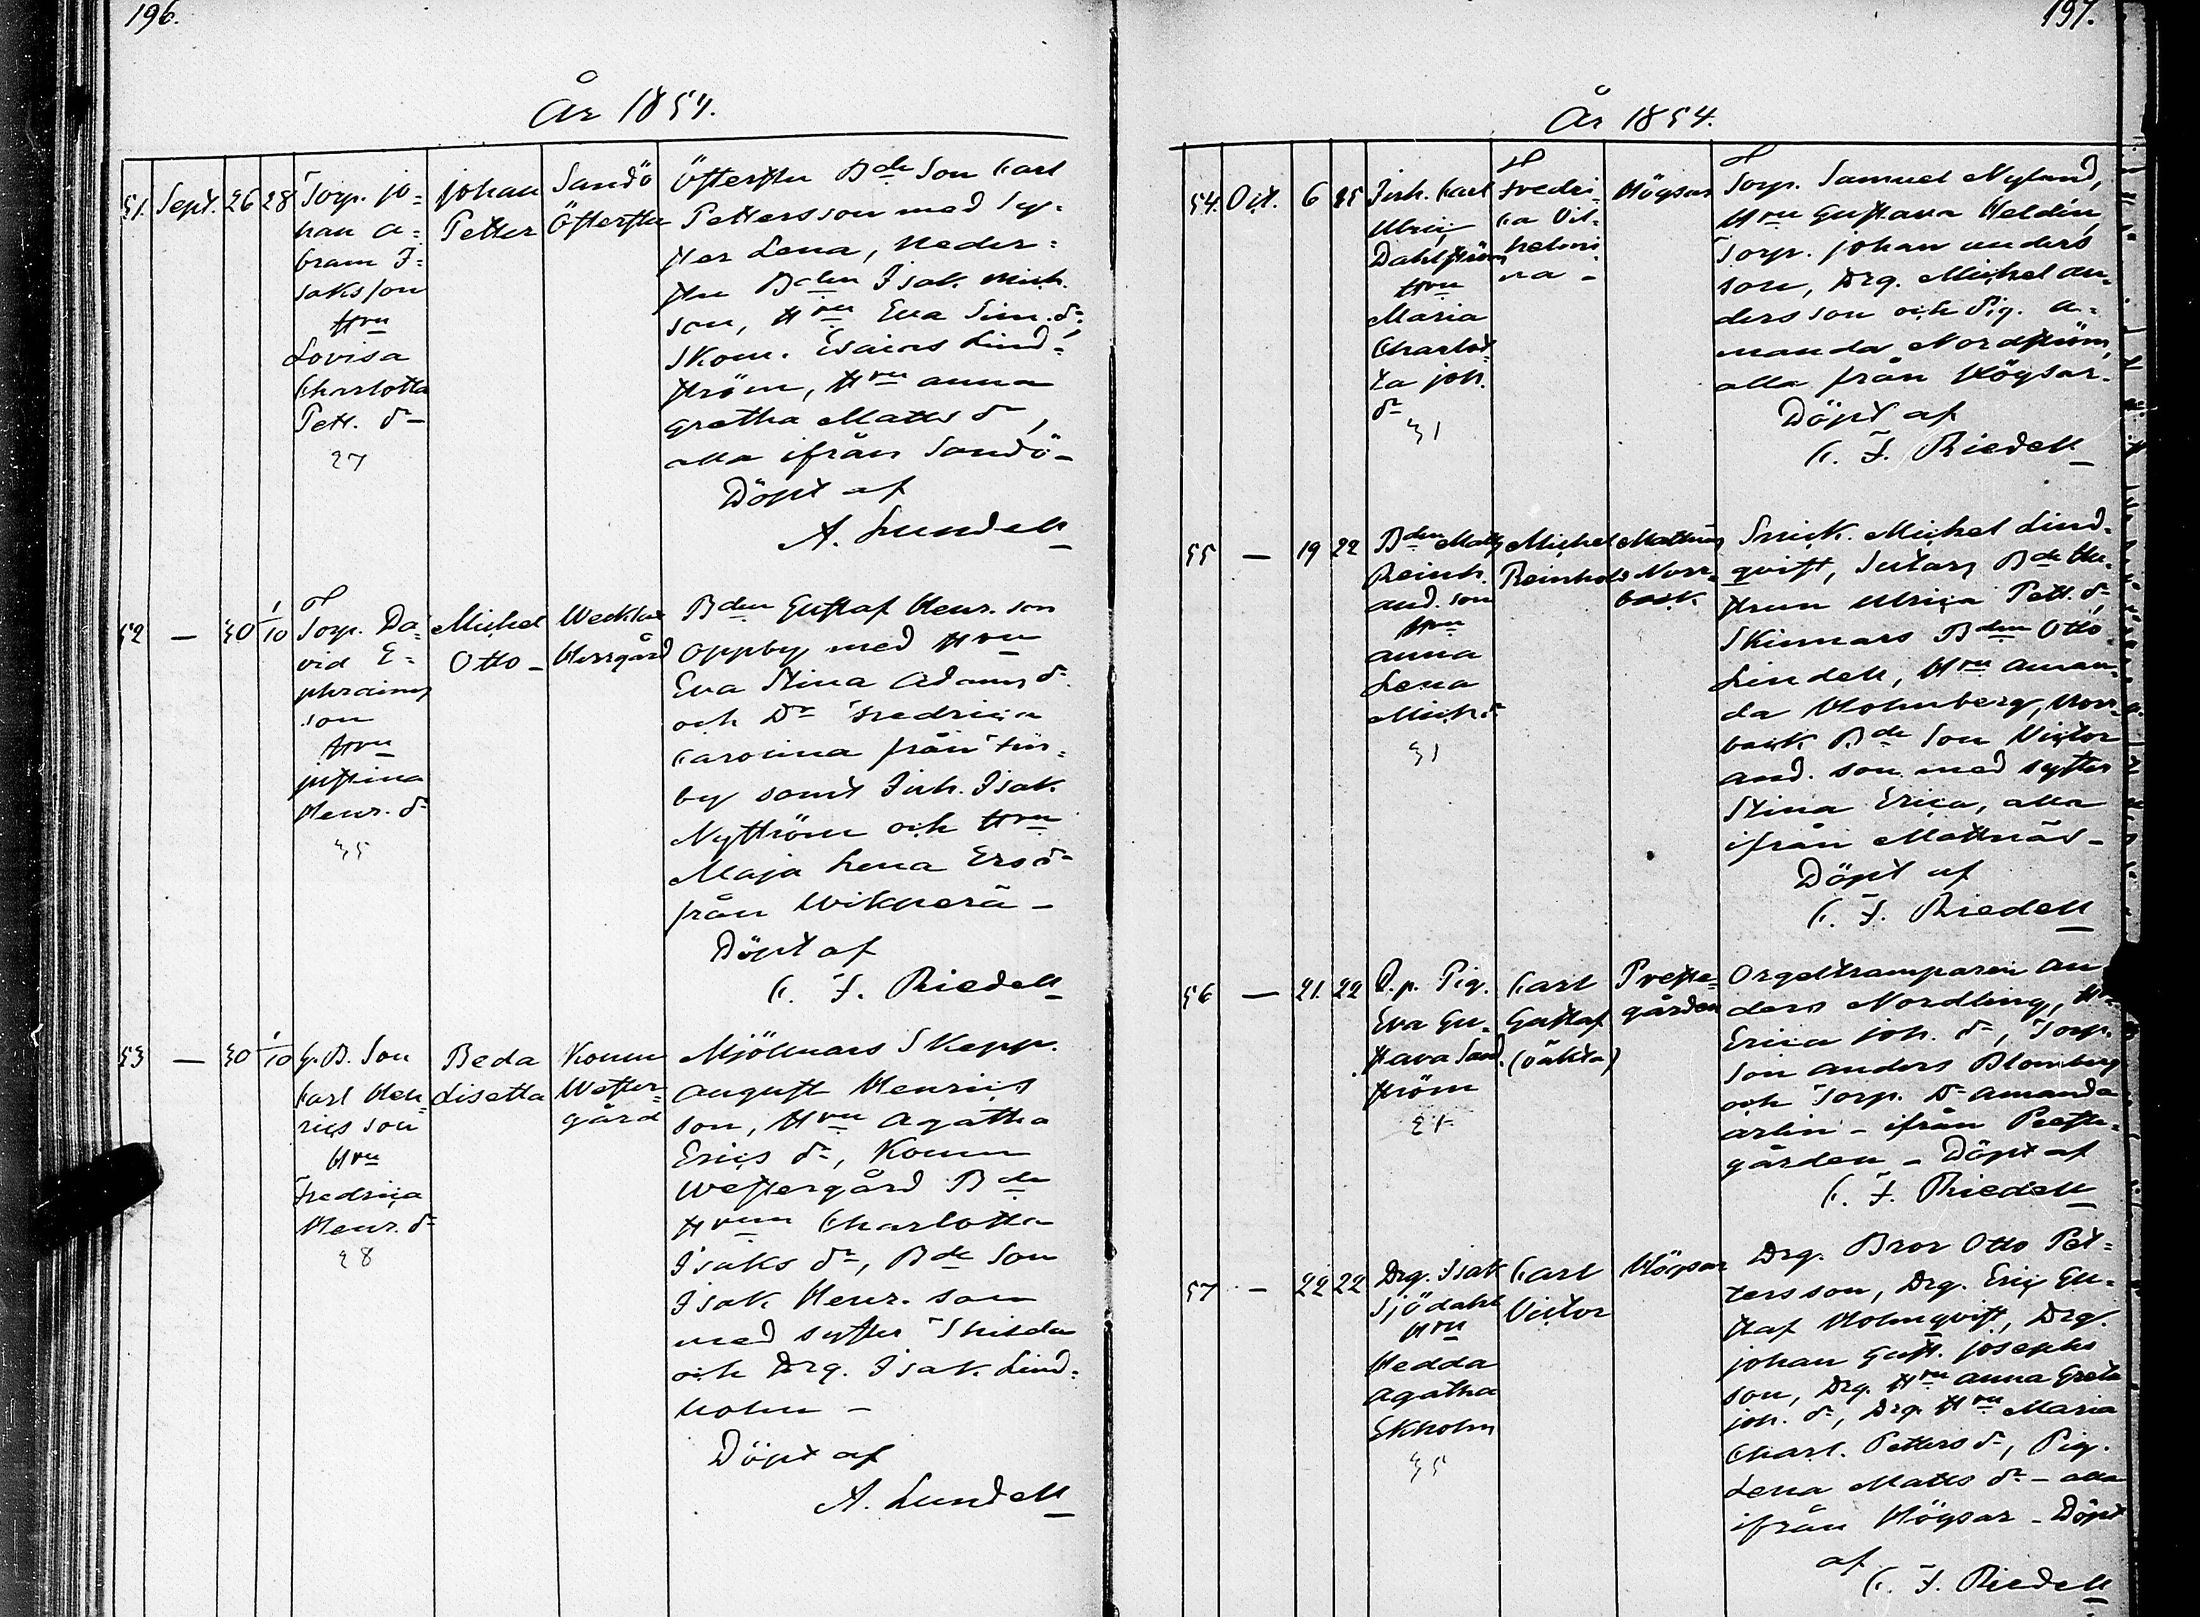 196.
År 1854.
51. Sept. 26 28
Torp. Jo=
han A=
bram I=
saksson
Hru
Lovisa
Charlotta
Pett. dr
27
Johan
Petter
Sandö
Östersta
Östersta Bde Son Carl
Pettersson med Sys=
ter Lena, Neder=
sta Bden Isak Mich.
son, Hru Eva Sim. dr,
Skom. Esaias Lind=
ström, Hru Anna
Gretha Matts dr,
alla ifrån Sandö -
Döpt af
A. Lundell
52 — 30 1/10
Torp. Da=
vid E=
phraims
son
Hru
Justina
Henr. dr
35
Michel
Otto -
Herrgård
Bden Gustaf Henr. son
Oppby med Hru
Eva Stina Adams dr
och Dr Fredrica
Carolina från Fin=
by samt Inh. Isak
Nyström och Hru
Maja Lena Ersdr
från Wikperä -
Döpt af
C. F. Riedell
53 — 30 1/10
G. B. Son
Carl Hen=
rics son
Hru
Fredrica
Henr. dr
28
Beda
Lisetta
Komu
Wester=
gård
Mjölnars Skepp.
August Henrics
son, Hru Agatha
Erics dr, Komu
Westergård Bde
Hrun Charlotta
Isaks dr, Bde Son
Isak Henr. son
med syster
och Drg. Isak Lind=
holm -
Döpt af
A. Lundell
197.
År 1854.
54. Oct. 6 15
Inh. Carl
Ulric
Dahlström
Hru
Maria
Charlot=
ta Joh.
dr
31
Fredri=
ca Vil=
helmi
na -
Högsar
Torp. Samuel Nylund,
Hru Gustava Heldin,
Torp. Johan Anders
son, Drg. Michel An=
dersson och Pig. A=
manda Nordström,
alla från Högsar.
Döpt af
C. F. Riedell
55 — 19 22
Bden Matts
Reinh.
And. son
Hru
Anna
Lena
Mich. dr
31
Michel
Reinhold
Mattnäs
Norr=
back
Snick. Michel Lind=
qvist, Sutars Bde Hu=
strun Ulrica Pett. dr,
Skinnars Bden Otto
Lindell, Hru Aman=
da Holmberg, Norr=
back Bde Son Victor
And. son med syster
Stina Erica, alla
ifrån Mattnäs -
Döpt af
C. F. Riedell
56 — 21. 22
Q.p. Pig.
Eva Gu=
stava Sand=
ström
21
Carl
Gustaf
(oäkta)
Preste=
gården
Orgeltramparen An=
ders Nordling, Hru
Erica Joh. dr, Torp.
Son Anders Blomberg
och Torp. Dr Amanda
Arlin - ifrån Preste=
gården - Döpt af
C. F. Riedell
57 — 22 22
Drg. Isak
Sjödahl
Hru
Hedda
Agatha
Ekholm
35
Carl
Victor
Högsar
Drg. Bror Otto Pet=
tersson, Drg. Eric Gu=
staf Holmqvist, Drg.
Johan Gust. Josephs
son, Drg. Hru Anna Greta
Joh. dr, Drg. Hru Maria
Charl. Petters dr, Pig.
Lena Matts dr - alla
ifrån Högsar - Döpt
af
C. F. Riedell